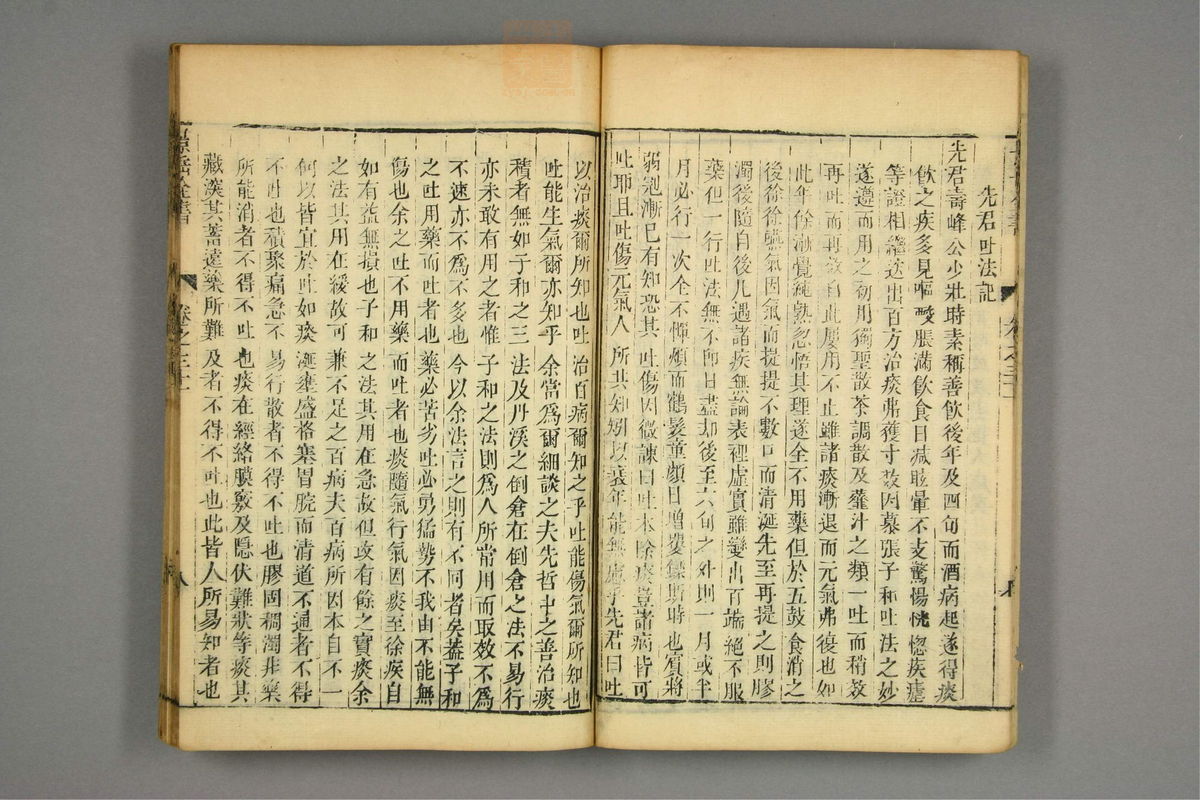 先君吐法記
先君壽峰公少壯時素稱善飲後年及四旬而酒病起遂得痰
飲之疾多見嘔酸脹滿飲食日減眩暈不支驚惕恍惚疾瘧
等證相繼迭出百方治痰弗獲寸效因慕張子和吐法之妙
遂遵而用之初用獨聖散茶調散及虀汁之類一吐而稍效
再吐而再效自此屢用不止雖諸痰漸退而元氣弗復也如
此年餘漸覺純熟忽悟其理遂全不用藥但於五鼓食消之
後徐徐嚥氣因氣而提提不數口而清涎先至再提之則膠
濁後隨自後凡遇諸疾無論表裡虛實雖變出百端絕不服
藥但一行吐法無不即日盡却後至六旬之外則一月或半
月必行一次全不憚煩而鶴髮童顏日增矍鑠斯時也賓將
弱冠漸已有知恐其吐傷因微諫曰吐本除痰豈諸病皆可
吐耶且吐傷元氣人所共知矧以衰年能無慮乎先君曰吐
以治痰爾所知也吐治百病爾知之乎吐能傷氣爾所知也
吐能生氣爾亦知乎余當爲爾細談之夫先哲中之善治痰
積者無如子和之三法及丹溪之倒倉在倒倉之法不易行
亦未敢有用之者惟子和之法則爲人所常用而取效不爲
不速亦不爲不多也今以余法言之則有不同者矣葢子和
之吐用藥而吐者也藥必苦劣吐必勇猛勢不我由不能無
傷也余之吐不用藥而吐者也痰隨氣行氣因痰至徐疾自
如有益無損也子和之法其用在急故但攻有餘之實痰余
之法其用在緩故可兼不足之百病夫百病所因本自不一
何以皆宜於吐如痰涎壅盛格塞胃脘而清道不通者不得
不吐也積聚痛急不易行散者不得不吐也膠固稠濁非藥
所能消者不得不吐也痰在經絡膜竅及隱伏難狀等痰其
藏深其蓄遠藥所難及者不得不吐也此皆人所易知者也
景岳全書
卷之三十一
八